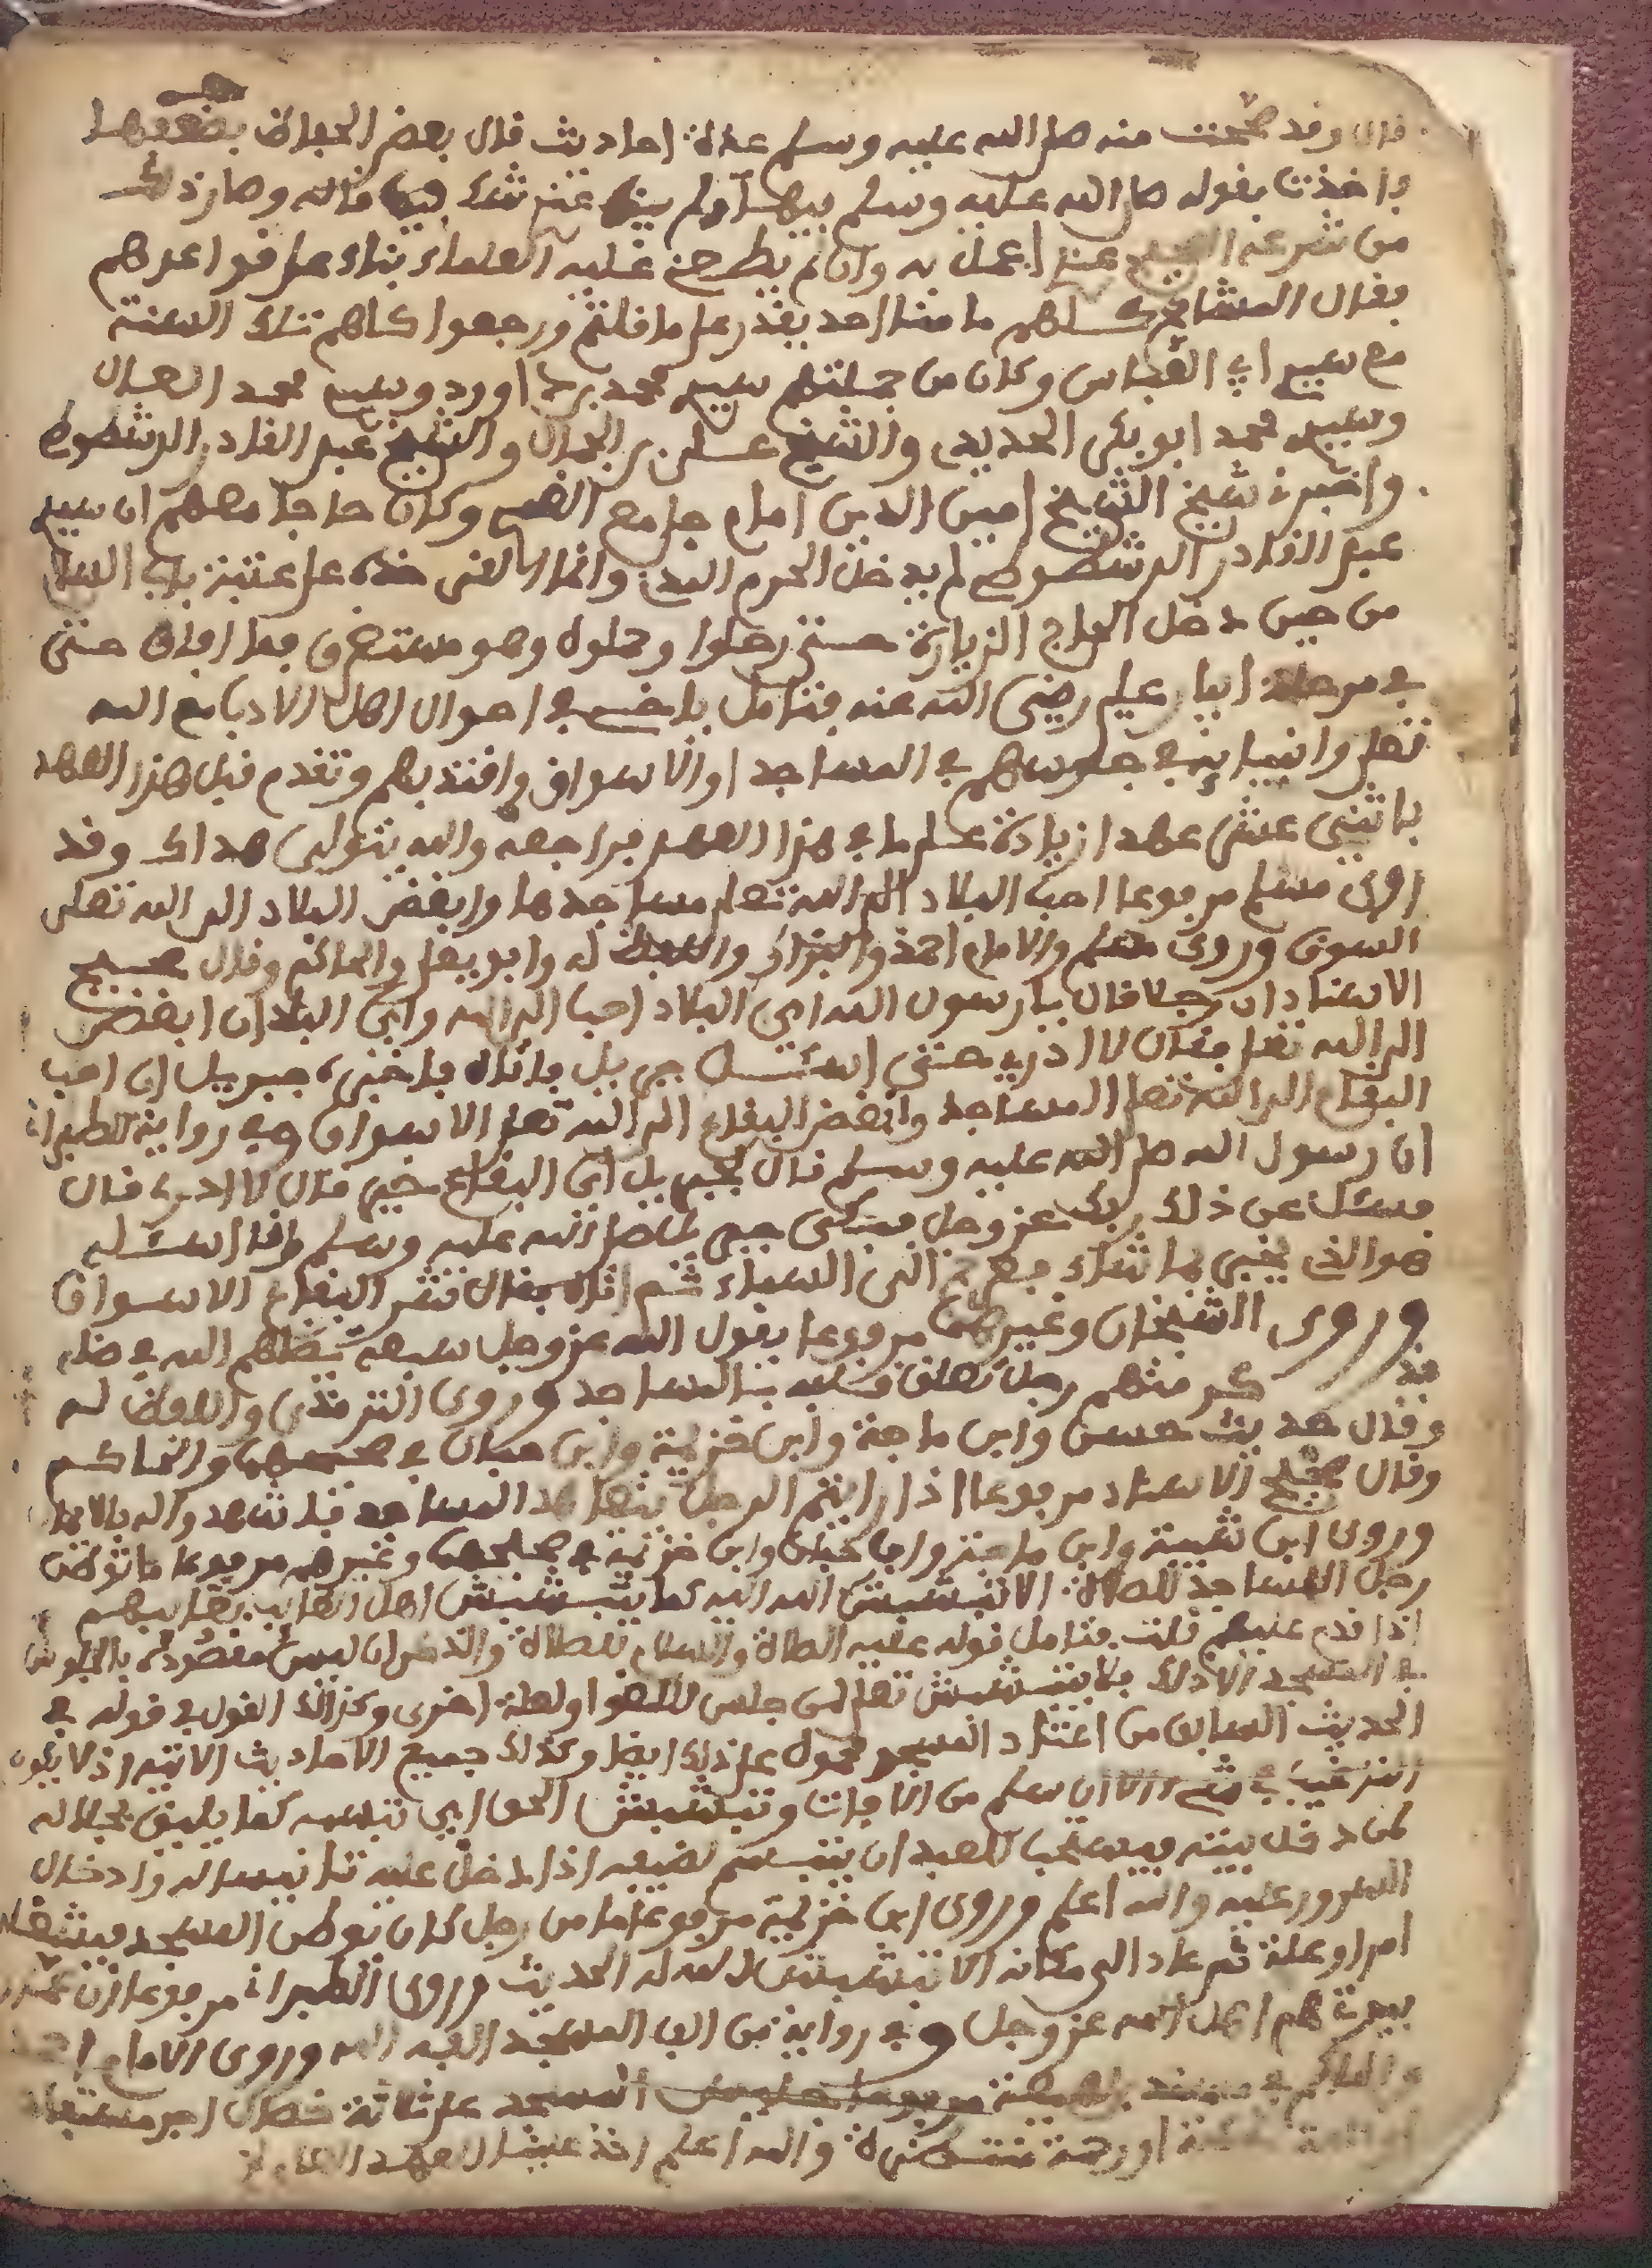 قال وقد صححت منه صلى الله عليه وسلم عدة احاديث قال بعض الحفاظ بضعفها
فاخذت بقوله صلى الله عليه وسلم فيها ولم يبق عندى شك فيما قاله وصار ذلك
من شرعه الصحيح عندى اعمل به وان لم يطعنى عليه العلماء بناء على قواعدهم
فقال المشايخ كلهم ما منا احد يقدر على ما قلتم ورجعوا كلهم تلك السنة
مع سيدي ابي العباس وكان من جملتهم سيدي محمد بن داوود وسيدي محمد العدل
وسيدي محمد ابو بكر الحديدى والشيخ على بن الجمال والشيخ عبد القادر الدشطوطي
واخبرنى شيخ الشيخ امين الدين امام جامع الغمرى وكان حاجا معهم ان سيدي
عبد القادر الدشطوطي لم يدخل الحرم النبوي وانما القى خده على عتبة باب السلام
من حين دخل الحاج الزيارة حتى رحلوا وحملوه وهو مستغرق فما افاق حتى
في مرحلة ابيار علي رضى الله عنه فتامل يا اخى في احوال اهل الادب مع الله
تعلى وانبيايه في جلوسهم في المساجد او الاسواق واقتد بهم وتقدم قبل هذا العهد
باثنى عشر عهدا زيادة على ما في هذا العهد فراجعه والله يتولى هداك وقد
روى مسلم مرفوعا احب البلاد الى الله تعلى مساجدها وابغض البلاد الى الله تعلى
السوق وروى مسلم والامام احمد والبزار واللفظ له وابو يعلى والحاكم وقال صحيح
الاسناد ان رجلا قال يا رسول الله اى البلاد احب الى الله واى البلدان ابغض
الى الله تعلى فقال لا ادرى حتى اسئل جبريل فاتاه فاخبره جبريل ان احب
البقاع الى الله تعلى المساجد وابغض البقاع الى الله تعلى الاسواق وفي رواية للطبرانى
ان رسول الله صلى الله عليه وسلم قال لجبريل اى البقاع خير قال لا ادرى قال
فسئل عن ذلك ربك عز وجل فبكى جبريل صلى الله عليه وسلم وانا اسئله
هو الذي يخبر بما شاء فعرج الى السماء ثم اتاه فقال شر البقاع الاسواق
وروى الشيخان وغيرهما مرفوعا يقول الله عز وجل سبعة يظلهم الله في ظله
فذكر منهم رجل تعلق قلبه بالمساجد وروى الترمذى واللفظ له
وقال حديث حسن وابن ماجة وابن خزيمة وابن حبان في صحيحهما والحاكم
وقال صحيح الاسناد مرفوعا اذا رايتم الرجل يتعاهد المساجد فاشهدوا له بالايمان
وروى ابن شيبة وابن ماجة وابن حبان وابن خزيمة في صحيحهما وغيرهم مرفوعا ما توطن
رجل المساجد للصلاة الا تبشبش الله اليه كما يتبشبش اهل الغائب بغائبهم
اذا قدم عليهم قلت فتامل قوله عليه الصلاة والسلام للصلاة والذكر ان ليس مقصوده بالجلوس
في المسجد الا ذلك فلا يتبشبش تعلى لمن جلس للغو او لعلة اخرى وكذلك القول في قوله في
الحديث السابق من اعتاد المسجد محمول على ذلك ايضا وكذلك جميع الاحاديث الاتية اذ لا يكون
الترغيب في شىء الا ان سلم من الافات وتبشبش الحق اى تبسمه كما يليق بجلاله
لمن دخل بيته فيستحب للعبد ان يتبسم لضيفه اذا دخل عليه تانيسا له وادخال
السرور عليه والله اعلم وروى ابن خزيمة مرفوعا ما من رجل كان توطن المسجد فشغله
امر او علة ثم عاد الى مكانه الا تبشبش الله له الحديث وروى الطبرانى مرفوعا ان عمار
بيوت الله هم اهل الله عز وجل وفي رواية من الف المسجد الفه الله وروى الامام احمد
والحاكم في مرفوعا المسجد على ثلاثة خصال اخ مستفاد
او رحمة منتظرة والله اعلم اخذ علينا العهد العام